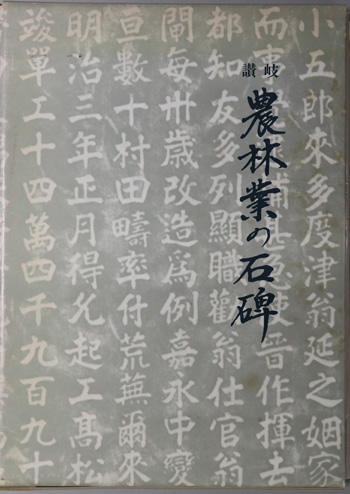 讃岐
農林業の石碑
小五郎來多度津翁延之姻家
而事
晋作揮去
都知友多列顯職勸翁仕官翁
閘每卅歳改造爲例嘉永中變
亘數十村田疇率付荒蕪爾來
明治三年正月得允起工髙松
竣單工十四萬四千九百九十